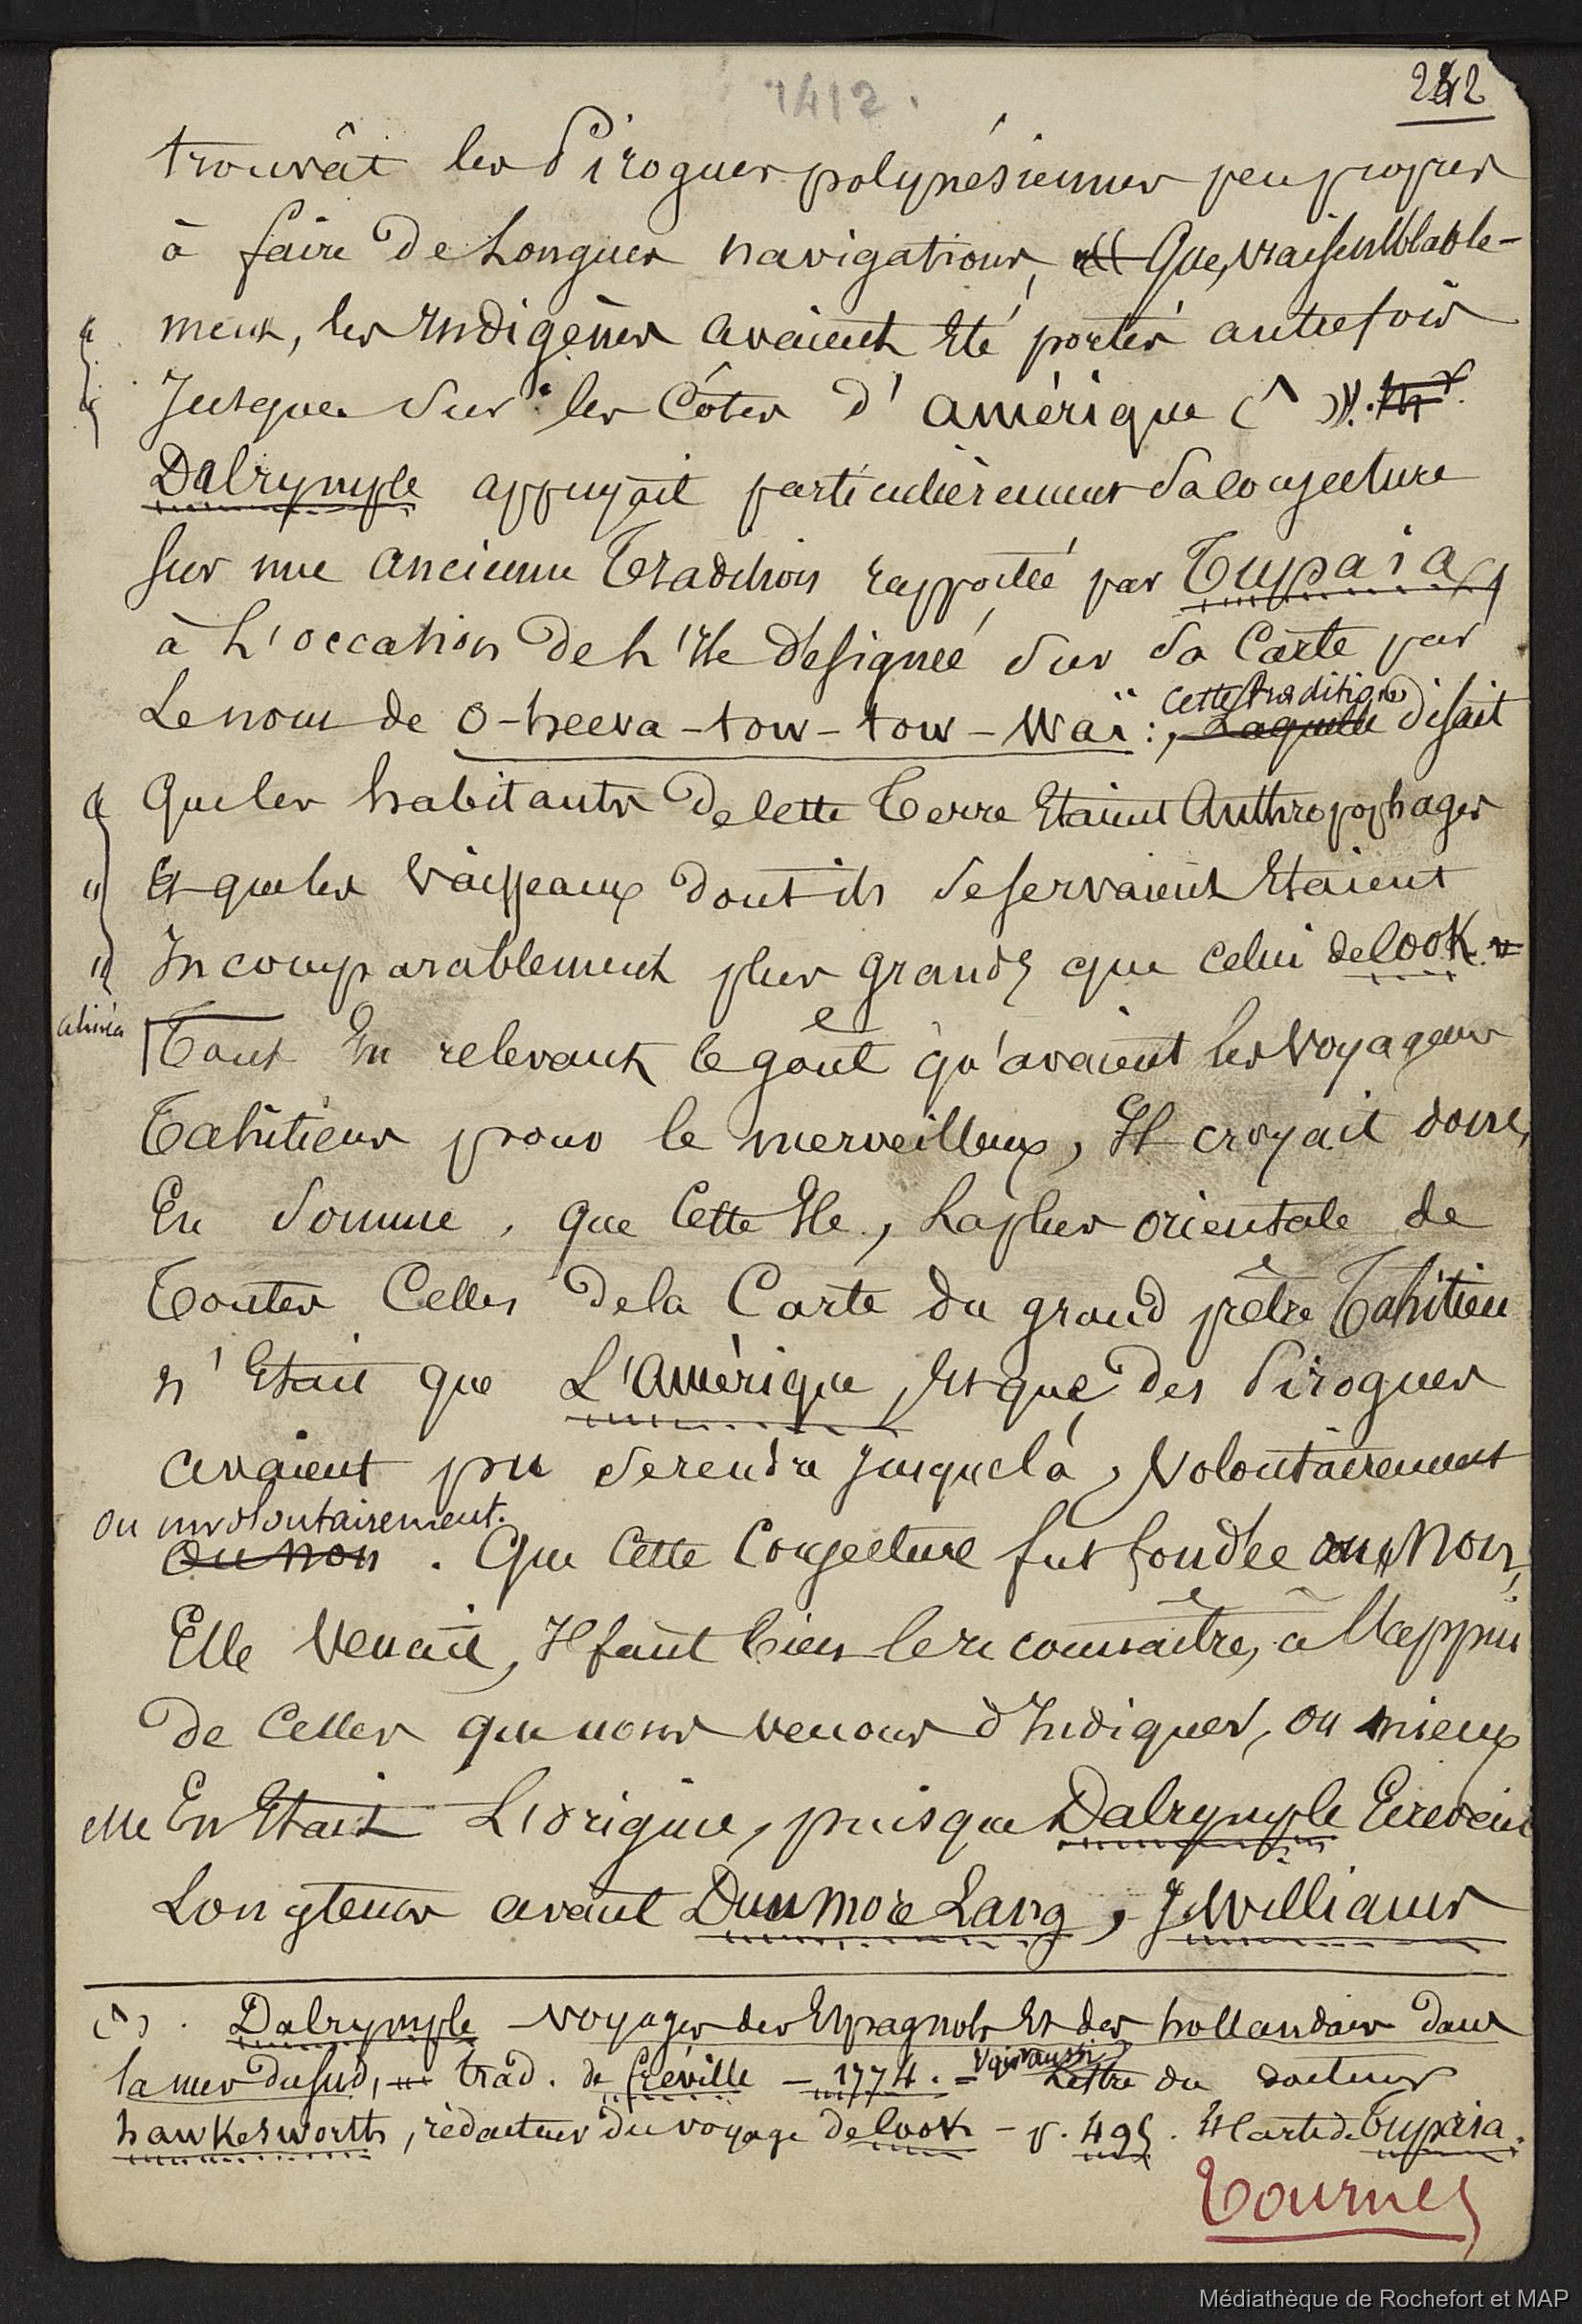 1412.
242
trouvât les Pirogues polynésiennes peu propres
à faire de Longues navigations, Que, vraisemblable-
ment, les Indigènes avaient Eté portés autrefois
Jusque sur les Côtes d'amérique (1) ».
Dalrymple appuyait particulièrement Sa conjecture
sur une ancienne Tradition rapportée par Tupaia,
à L'occasion de L'Ile désignée sur sa Carte par
Le nom de O-heeva-tow-tow-waï : cette tradition disait
« Que les habitants de cette Terre Etaient Anthropophages
" Et que les vaisseaux dont ils se servaient Etaient
" Incomparablement plus grands que celui de Cook. »
alinéa Tout En relevant le goût qu'avaient les voyageurs
Tahitiens pour le merveilleux, Il croyait donc,
En Somme, que Cette Ile, La plus orientale de
Toutes Celles de la Carte du grand prêtre Tahitien
n'Etait que L'Amérique, Et que des Pirogues
avaient pu se rendre Jusque là, Volontairement
ou involontairement.
ou non. Que Cette Conjecture fut fondée ou Non,
Elle Venait, Il faut bien le reconnaître, à l'appui
de Celles que nous venons d'Indiquer, ou mieux
elle En Etait L'origine, puisque Dalrymple Ecrivait
Longtems avant Dunmore Lang, J. Williams
(1). Dalrymple - voyages des Espagnols Et des hollandais dans
la mer du Sud, - trad. de Fréville - 1774. = Voir aussi Lettre du docteur
hawkesworth, rédacteur du voyage de Cook - p. 495. Et Carte de Tupaia.
Tournez
Médiathèque de Rochefort et MAP